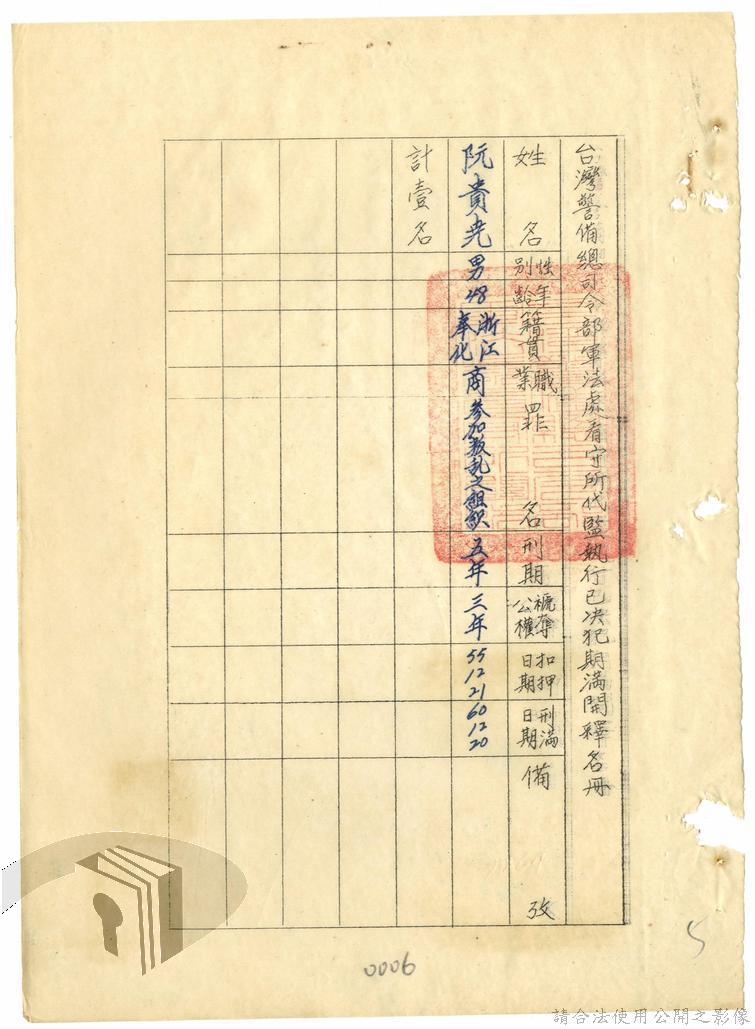 台灣警備總司令部軍法處看守所代監執行已決犯期滿開釋名冊
姓名 性別 年齡 籍貫 職業 罪名 刑期 褫奪公權 扣押日期 刑滿日期 備攷
阮貴堯 男 48 浙江奉化 商 參加叛乱之組織 五年 三年 55 12 21 60 12 20
計壹名
5
0006
請合法使用公開之影像